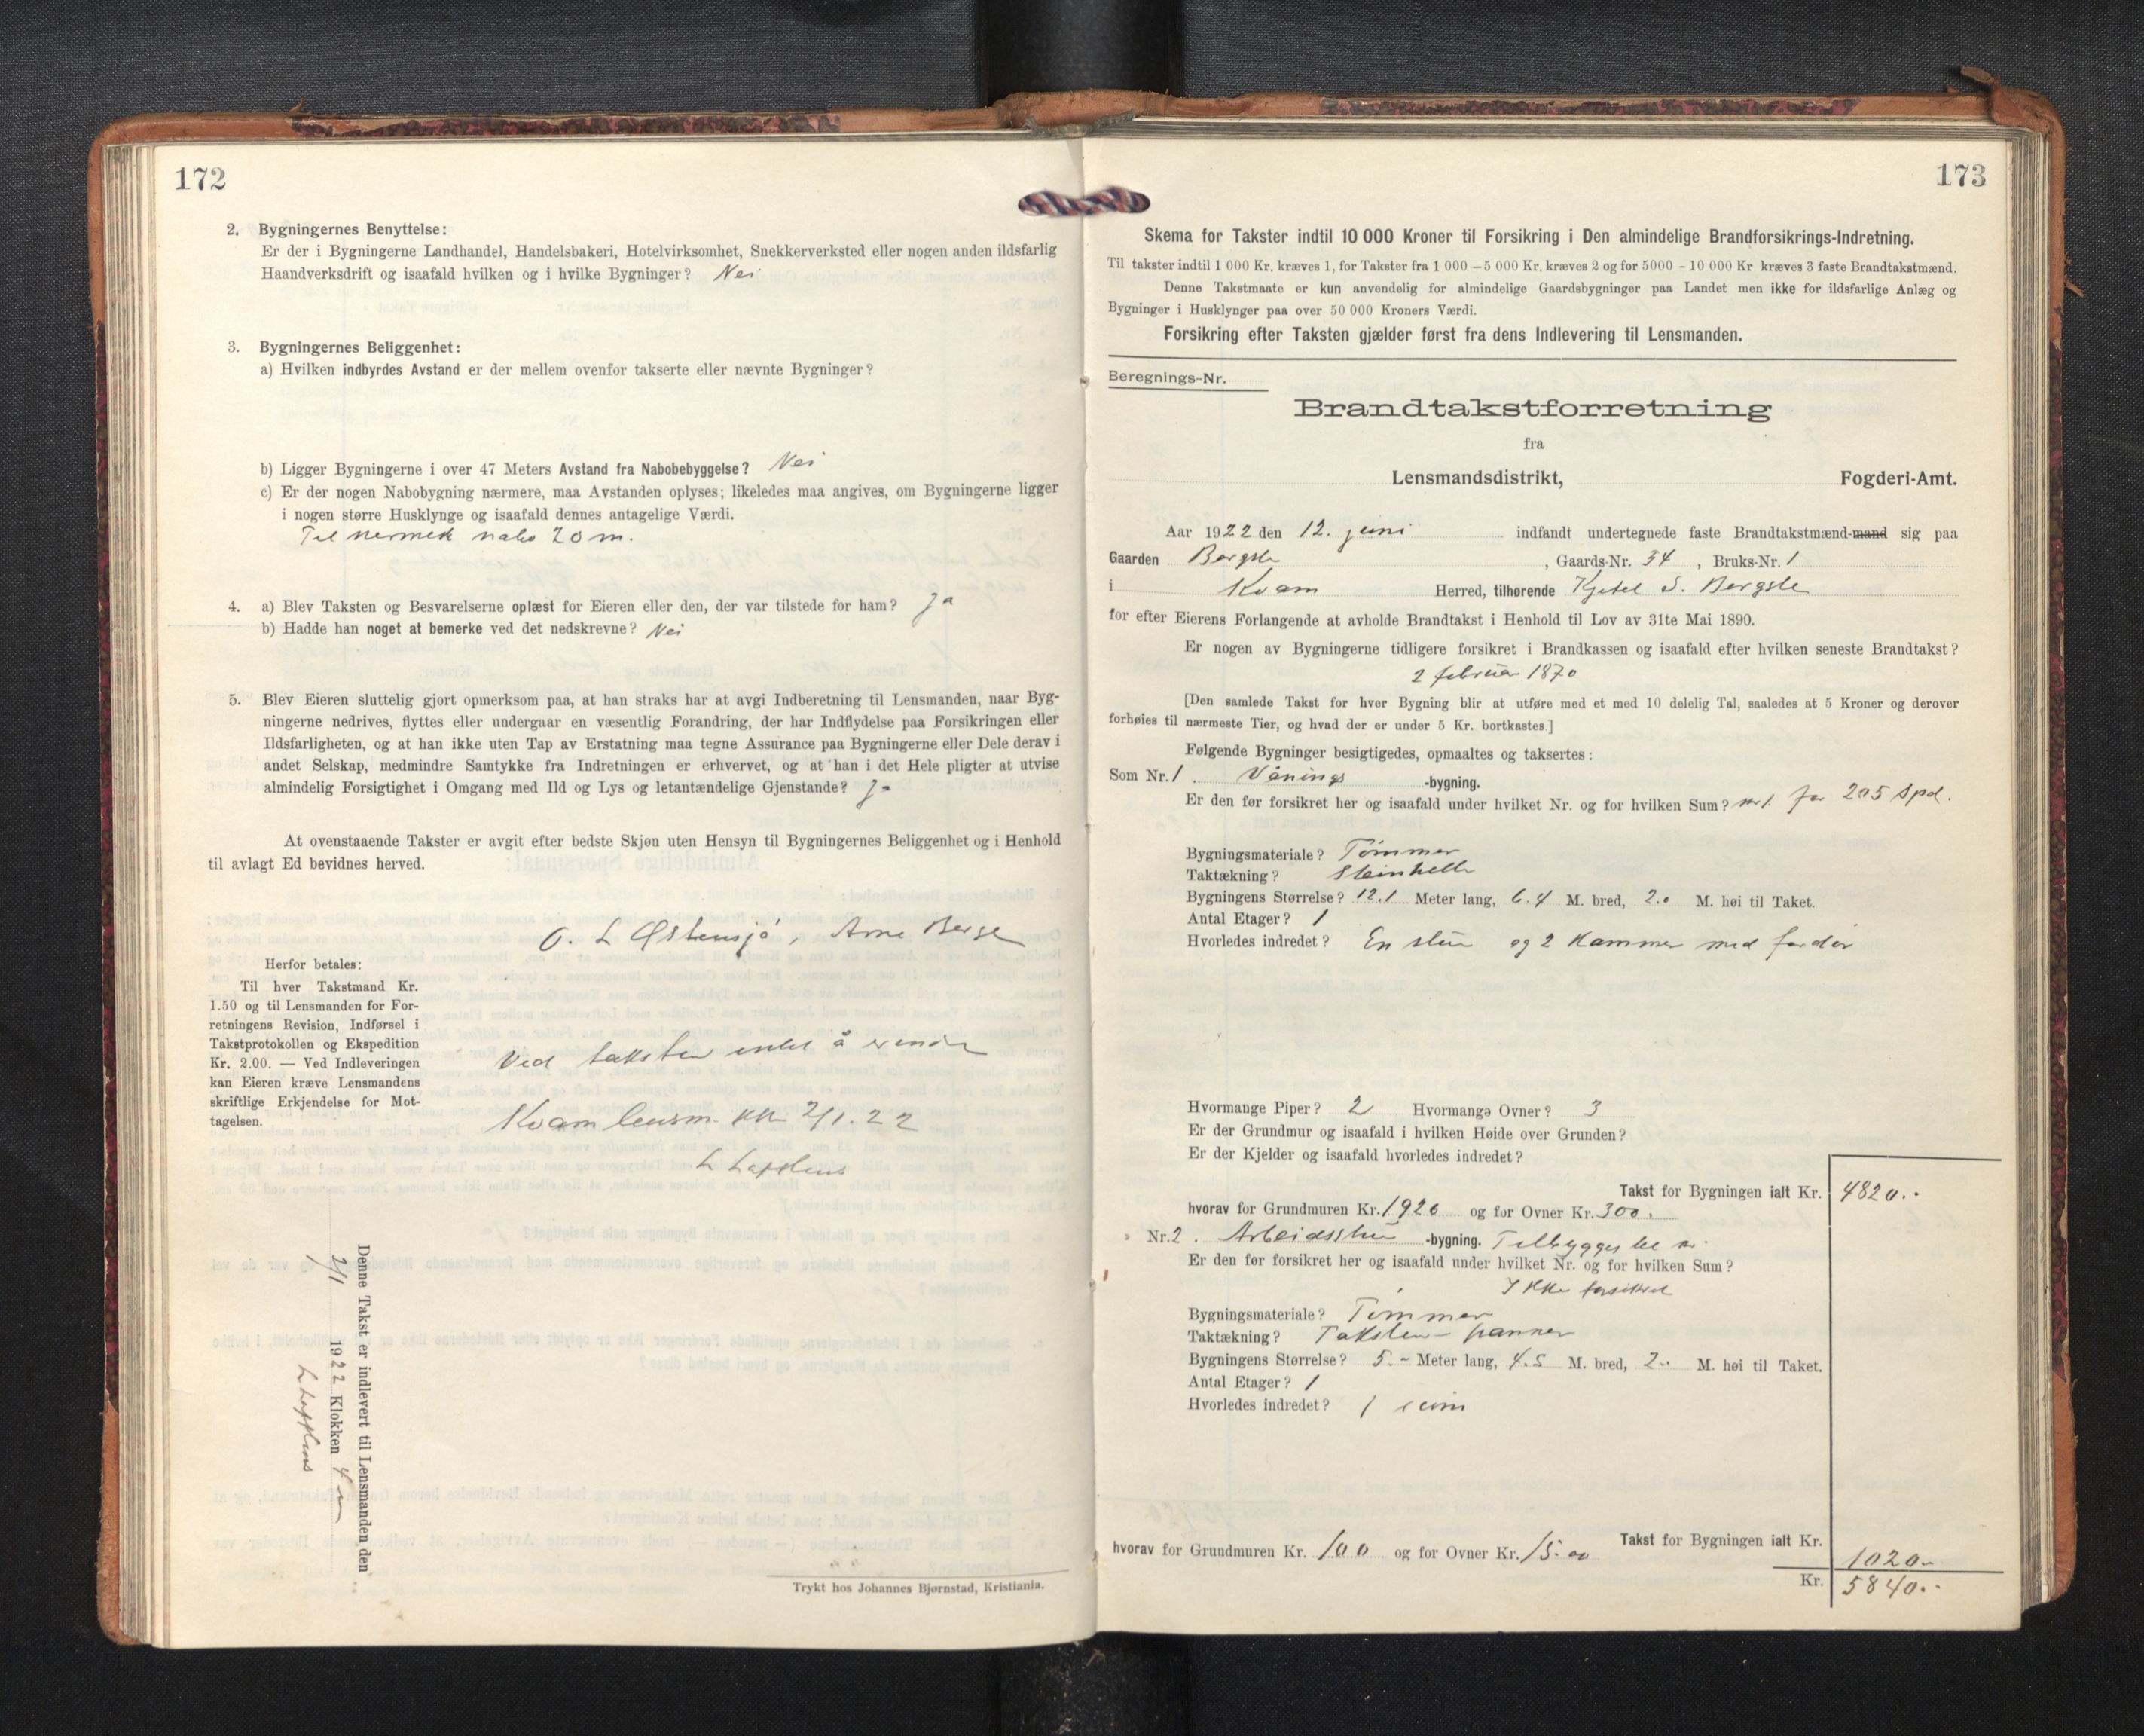 172
2. Bygningernes Benyttelse:
Er der i Bygningerne Landhandel, Handelsbakeri, Hotelvirksomhet, Snekkerverksted eller nogen anden ildsfarlig
Haandverksdrift og isaafald hvilken og i hvilke Bygninger? Nei
3. Bygningernes Beliggenhet:
a) Hvilken indbyrdes Avstand er der mellem ovenfor takserte eller nævnte Bygninger?
b) Ligger Bygningerne i over 47 Meters Avstand fra Nabobebyggelse? Nei
c) Er der nogen Nabobygning nærmere, maa Avstanden oplyses; likeledes maa angives, om Bygningerne ligger
i nogen større Husklynge og isaafald dennes antagelige Værdi.
Til nermek nabo 20 m.
4. a) Blev Taksten og Besvarelserne oplæst for Eieren eller den, der var tilstede for ham? Ja
b) Hadde han noget at bemerke ved det nedskrevne? Nei
5. Blev Eieren sluttelig gjort opmerksom paa, at han straks har at avgi Indberetning til Lensmanden, naar Byg-
ningerne nedrives, flyttes eller undergaar en væsentlig Forandring, der har Indflydelse paa Forsikringen eller
Ildsfarligheten, og at han ikke uten Tap av Erstatning maa tegne Assurance paa Bygningerne eller Dele derav i
andet Selskap, medmindre Samtykke fra Indretningen er erhvervet, og at han i det Hele pligter at utvise
almindelig Forsigtighet i Omgang med Ild og Lys og letantændelige Gjenstande? Ja
At ovenstaaende Takster er avgit efter bedste Skjøn uten Hensyn til Bygningernes Beliggenhet og i Henhold
til avlagt Ed bevidnes herved.
O. L Østensjó, Arne Berge
Herfor betales:
Til hver Takstmand Kr.
1.50 og til Lensmanden for For-
retningens Revision, Indførsel i
Takstprotokollen og Ekspedition
Kr. 2.00. — Ved Indleveringen
kan Eieren kræve Lensmandens
skriftlige Erkjendelse for Mot-
tagelsen.
Ved taksten intet å
Kvam lensm. 2/1. 22
Denne Takst er indlevert til Lensmanden den
2/1 1922 Klokken 4
Trykt hos Johannes Bjørnstad, Kristiania.
173
Skema for Takster indtil 10 000 Kroner til Forsikring i Den almindelige Brandforsikrings-Indretning.
Til takster indtil 1 000 Kr. kræves 1, for Takster fra 1 000 — 5 000 Kr. kræves 2 og for 5000 - 10 000 Kr kræves 3 faste Brandtakstmænd.
Denne Takstmaate er kun anvendelig for almindelige Gaardsbygninger paa Landet men ikke for ildsfarlige Anlæg og
Bygninger i Husklynger paa over 50 000 Kroners Værdi.
Forsikring efter Taksten gjælder først fra dens Indlevering til Lensmanden.
Beregnings-Nr.
Brandtakstforretning
fra
Lensmandsdistrikt, Fogderi-Amt.
Aar 1922 den 12. juni indfandt undertegnede faste Brandtakstmænd-mand sig paa
Gaarden Bergste, Gaards-Nr. 34, Bruks-Nr. 1
i Kvam Herred, tilhørende Kjetel S. Bergste
for efter Eierens Forlangende at avholde Brandtakst i Henhold til Lov av 31te Mai 1890.
Er nogen av Bygningerne tidligere forsikret i Brandkassen og isaafald efter hvilken seneste Brandtakst?
2 februar 1870
[Den samlede Takst for hver Bygning blir at utføre med et med 10 delelig Tal, saaledes at 5 Kroner og derover
forhøies til nærmeste Tier, og hvad der er under 5 Kr. bortkastes.]
Følgende Bygninger besigtigedes, opmaaltes og taksertes:
Som Nr. 1. Vånings -bygning.
Er den før forsikret her og isaafald under hvilket Nr. og for hvilken Sum? nr 1 for 205 Spd.
Bygningsmateriale? Tømmer
Taktækning? Steinhelle
Bygningens Størrelse? 12.1 Meter lang, 6.4 M. bred, 2.0 M. høi til Taket.
Antal Etager? 1
Hvorledes indredet? En stue og 2 Kammer med fordør
Hvormange Piper? 2 Hvormange Ovner? 3
Er der Grundmur og isaafald i hvilken Høide over Grunden?
Er der Kjelder og isaafald hvorledes indredet?
Takst for Bygningen ialt Kr. 4820..
hvorav for Grundmuren Kr. 1920 og for Ovner Kr. 300.
Nr. 2. Arbeidsstue -bygning. Tilbygget
Er den før forsikret her og isaafald under hvilket Nr. og for hvilken Sum?
Ikke forsikret
Bygningsmateriale? Tømmer
Taktækning? Taksten panner
Bygningens Størrelse? 5.- Meter lang, 4.5 M. bred, 2.. M. høi til Taket.
Antal Etager? 1
Hvorledes indredet? 1 rum
Takst for Bygningen ialt Kr. 1020.-
hvorav for Grundmuren Kr. 100 og for Ovner Kr. 15.00
Kr. 5840..